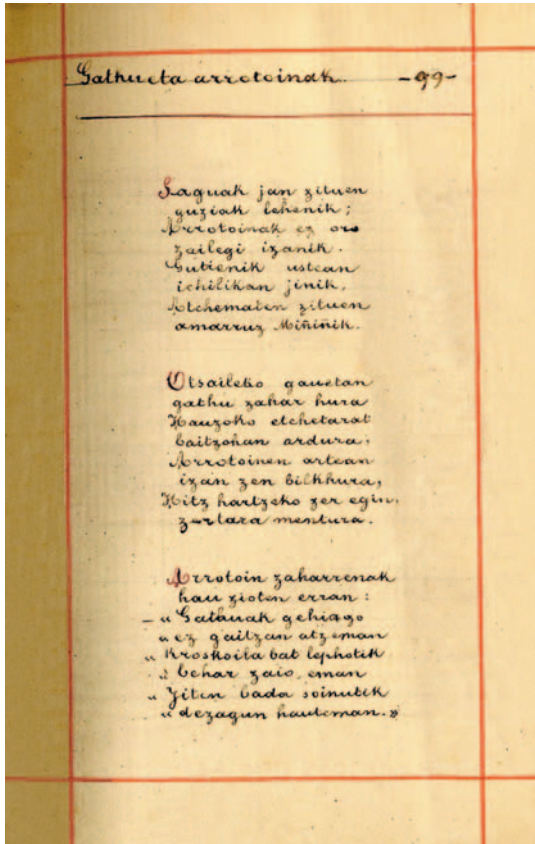 Gathu eta arrotoinak. -99-
Saguak jan zituen
guziak lehenik;
Arrotoinak ez oro
zailegi izanik.
Gutienik ustean
ichilikan jinik,
Atchematen zituen
amarruz Miñiñik.
Otsaileko gauetan
gathu zahar hura
Hauzoko etchetarat
baitzohan ardura;
Arrotoinen artean
izan zen bilkhura,
Hitz hartzeko zer egin,
zertara mentura.
Arrotoin zaharrenak
hau zioten erran:
– « Gathuak gehiago
« ez gaitzan atzeman
« Kroskoila bat lephotik
« behar zaio eman
« Jiten bada soinutik
« dezagun hauteman. »